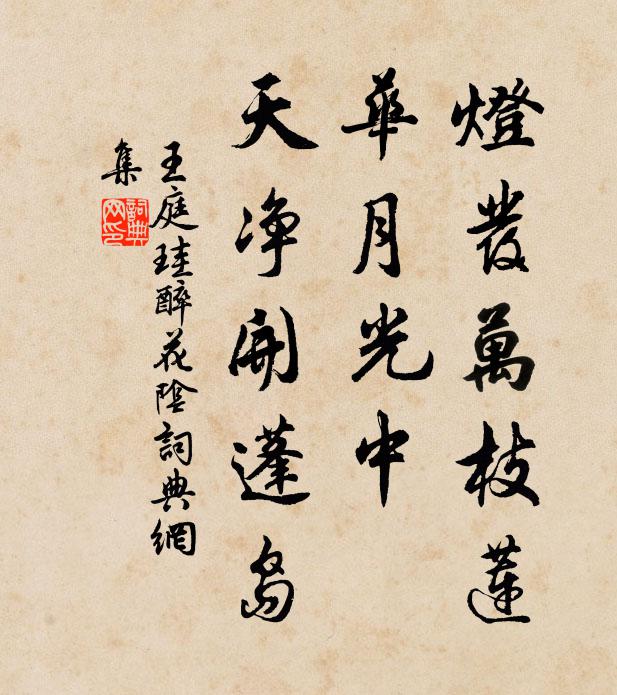 燈發萬枝蓮
華月光中
天淨開蓬島
王庭珪醉花陰詞典網
集
詞典網印